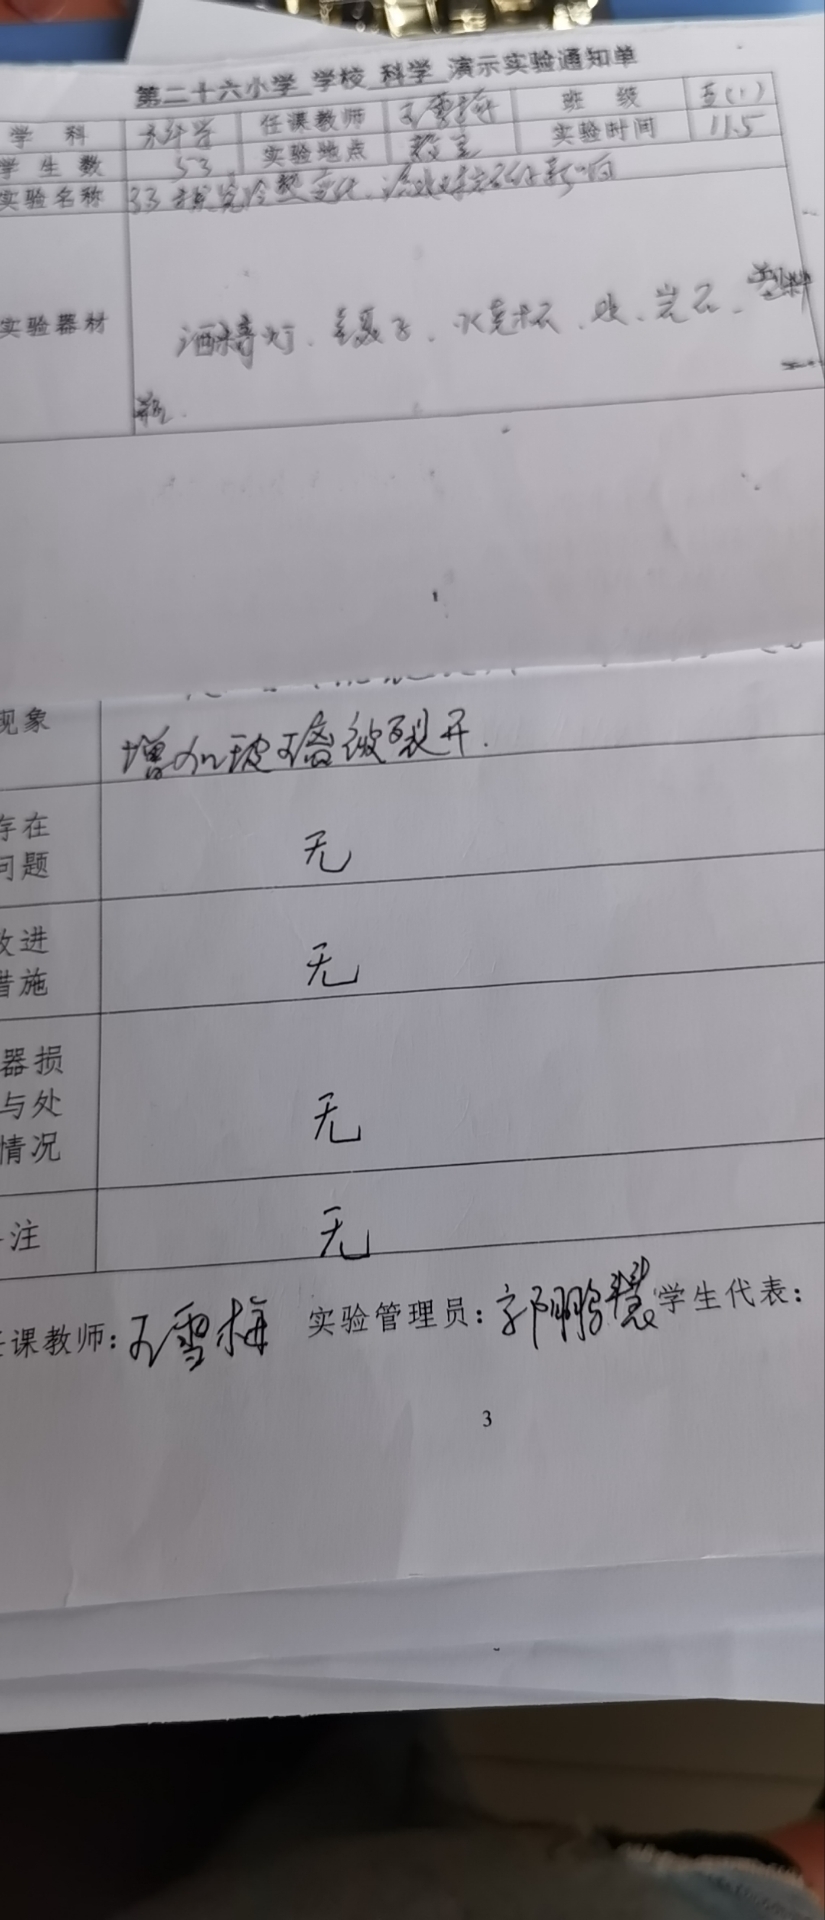 第二十六小学 学校 科学 演示实验通知单
学 科 科学 任课教师 王雪梅 班 级 五(1)
学生数 53 实验地点 教室 实验时间 11.5
实验名称 33探究冷热变化、冰对岩石的影响
实验器材 酒精灯、镊子、水、岩石、塑料
瓶.
现象 增加玻璃被裂开.
存在
问题 无
改进
措施 无
器损
与处
情况 无
注 无
任课教师:王雪梅 实验管理员:郭鹏慧 学生代表:
3